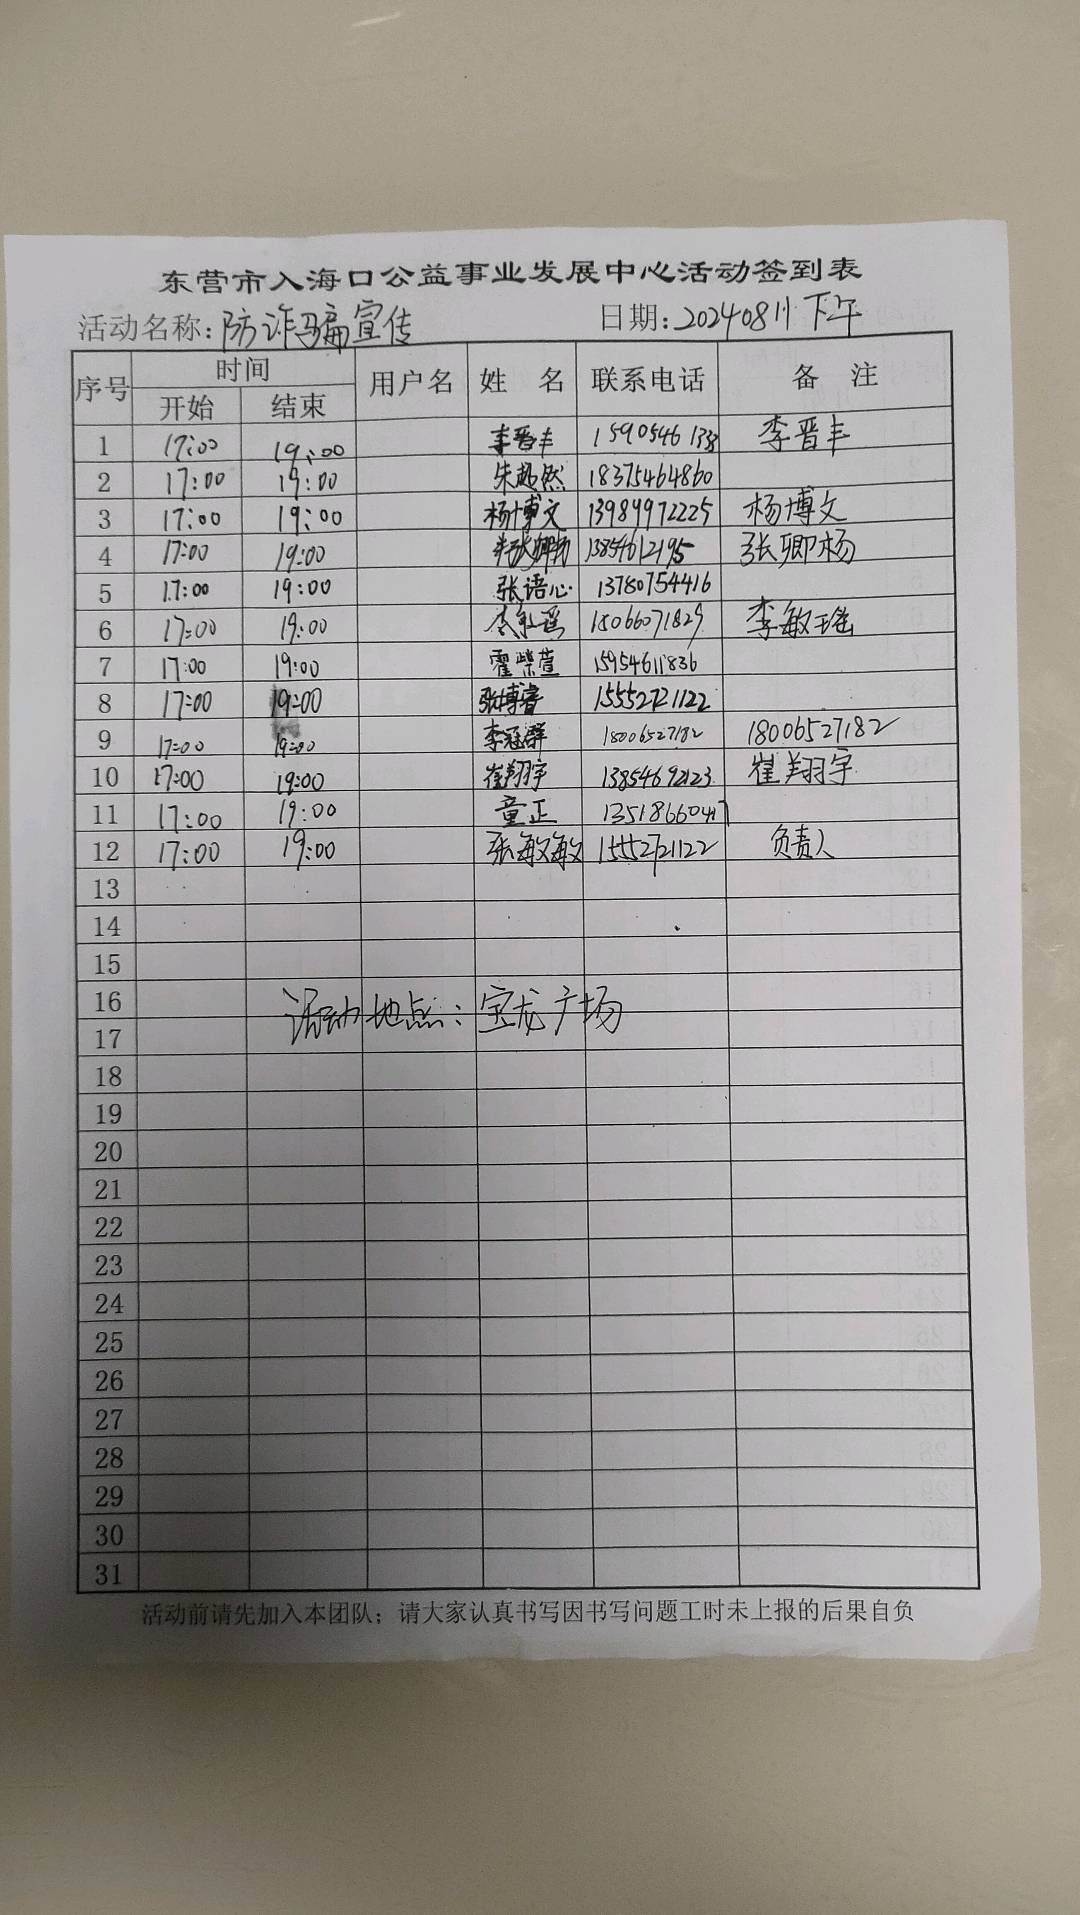 东营市入海口公益事业发展中心活动签到表
活动名称:防诈骗宣传 日期:20240811 下午
序号 时间 用户名 姓 名 联系电话 备 注
开始 结束
1 17:00 19:00 李晋丰 15905461333 李晋丰
2 17:00 19:00 朱超然 18375464860
3 17:00 19:00 杨博文 13989972225 杨博文
4 17:00 19:00 13854612195 张卿杨
5 17:00 19:00 张语心 13780754416
6 17:00 19:00 15066071829 李敏瑶
7 17:00 19:00 霍紫萱 15954611836
8 17:00 19:00 张博睿 15552721122
9 17:00 19:00 李冠群 18006527182 18006527182
10 17:00 19:00 崔翔宇 13854692123 崔翔宇
11 17:00 19:00 童正 13518660417
12 17:00 19:00 张敏敏 15552721122 负责人
13
14
15
16
活动地点:宝龙广场
17
18
19
20
21
22
23
24
25
26
27
28
29
30
31
活动前请先加入本团队；请大家认真书写因书写问题工时未上报的后果自负